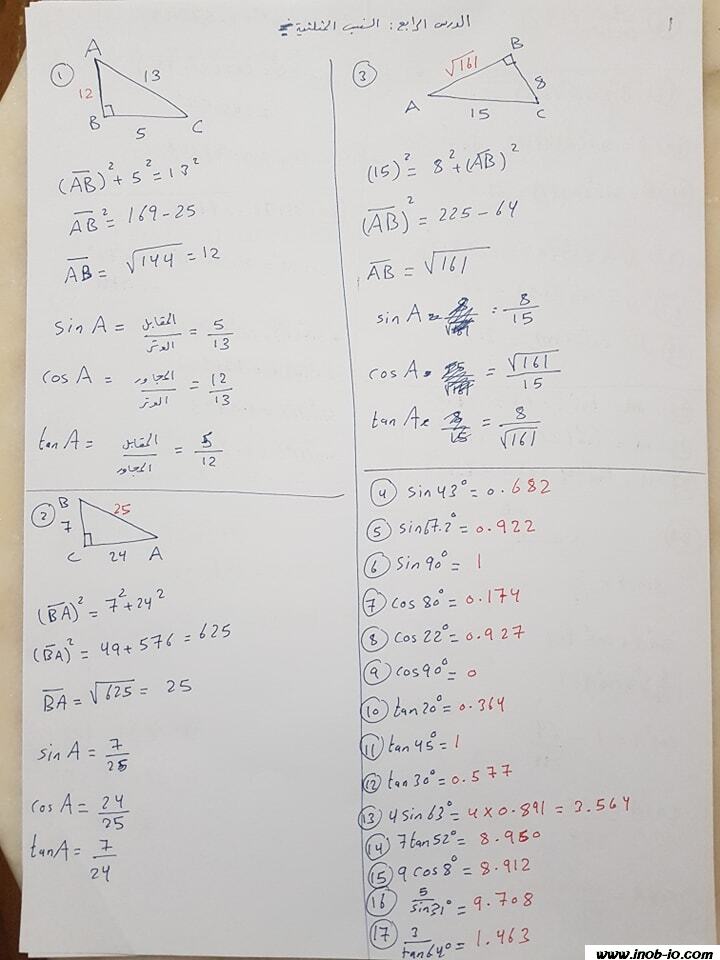 الدرس الرابع: النسب المثلثية
1
① A
13
12
B
5
C
(AB)² + 5² = 13²
AB² = 169 - 25
AB = √144 = 12
sin A = المقابل/الوتر = 5/13
cos A = المجاور/الوتر = 12/13
tan A = المقابل/المجاور = 5/12
② B
25
7
C
24
A
(BA)² = 7² + 24²
(BA)² = 49 + 576 = 625
BA = √625 = 25
sin A = 7/25
cos A = 24/25
tan A = 7/24
③ B
√161
8
A
15
C
(15)² = 8² + (AB)²
(AB)² = 225 - 64
AB = √161
sin A = 8/15
cos A = √161/15
tan A = 8/√161
④ sin 43° = 0.682
⑤ sin 67.2° = 0.922
⑥ sin 90° = 1
⑦ cos 80° = 0.174
⑧ cos 22° = 0.927
⑨ cos 90° = 0
⑩ tan 20° = 0.364
⑪ tan 45° = 1
⑫ tan 30° = 0.577
⑬ 4 sin 63° = 4 x 0.891 = 3.564
⑭ 7 tan 52° = 8.950
⑮ 9 cos 8° = 8.912
⑯ 5/sin 31° = 9.708
⑰ 3/tan 64° = 1.463
www.inob-io.com